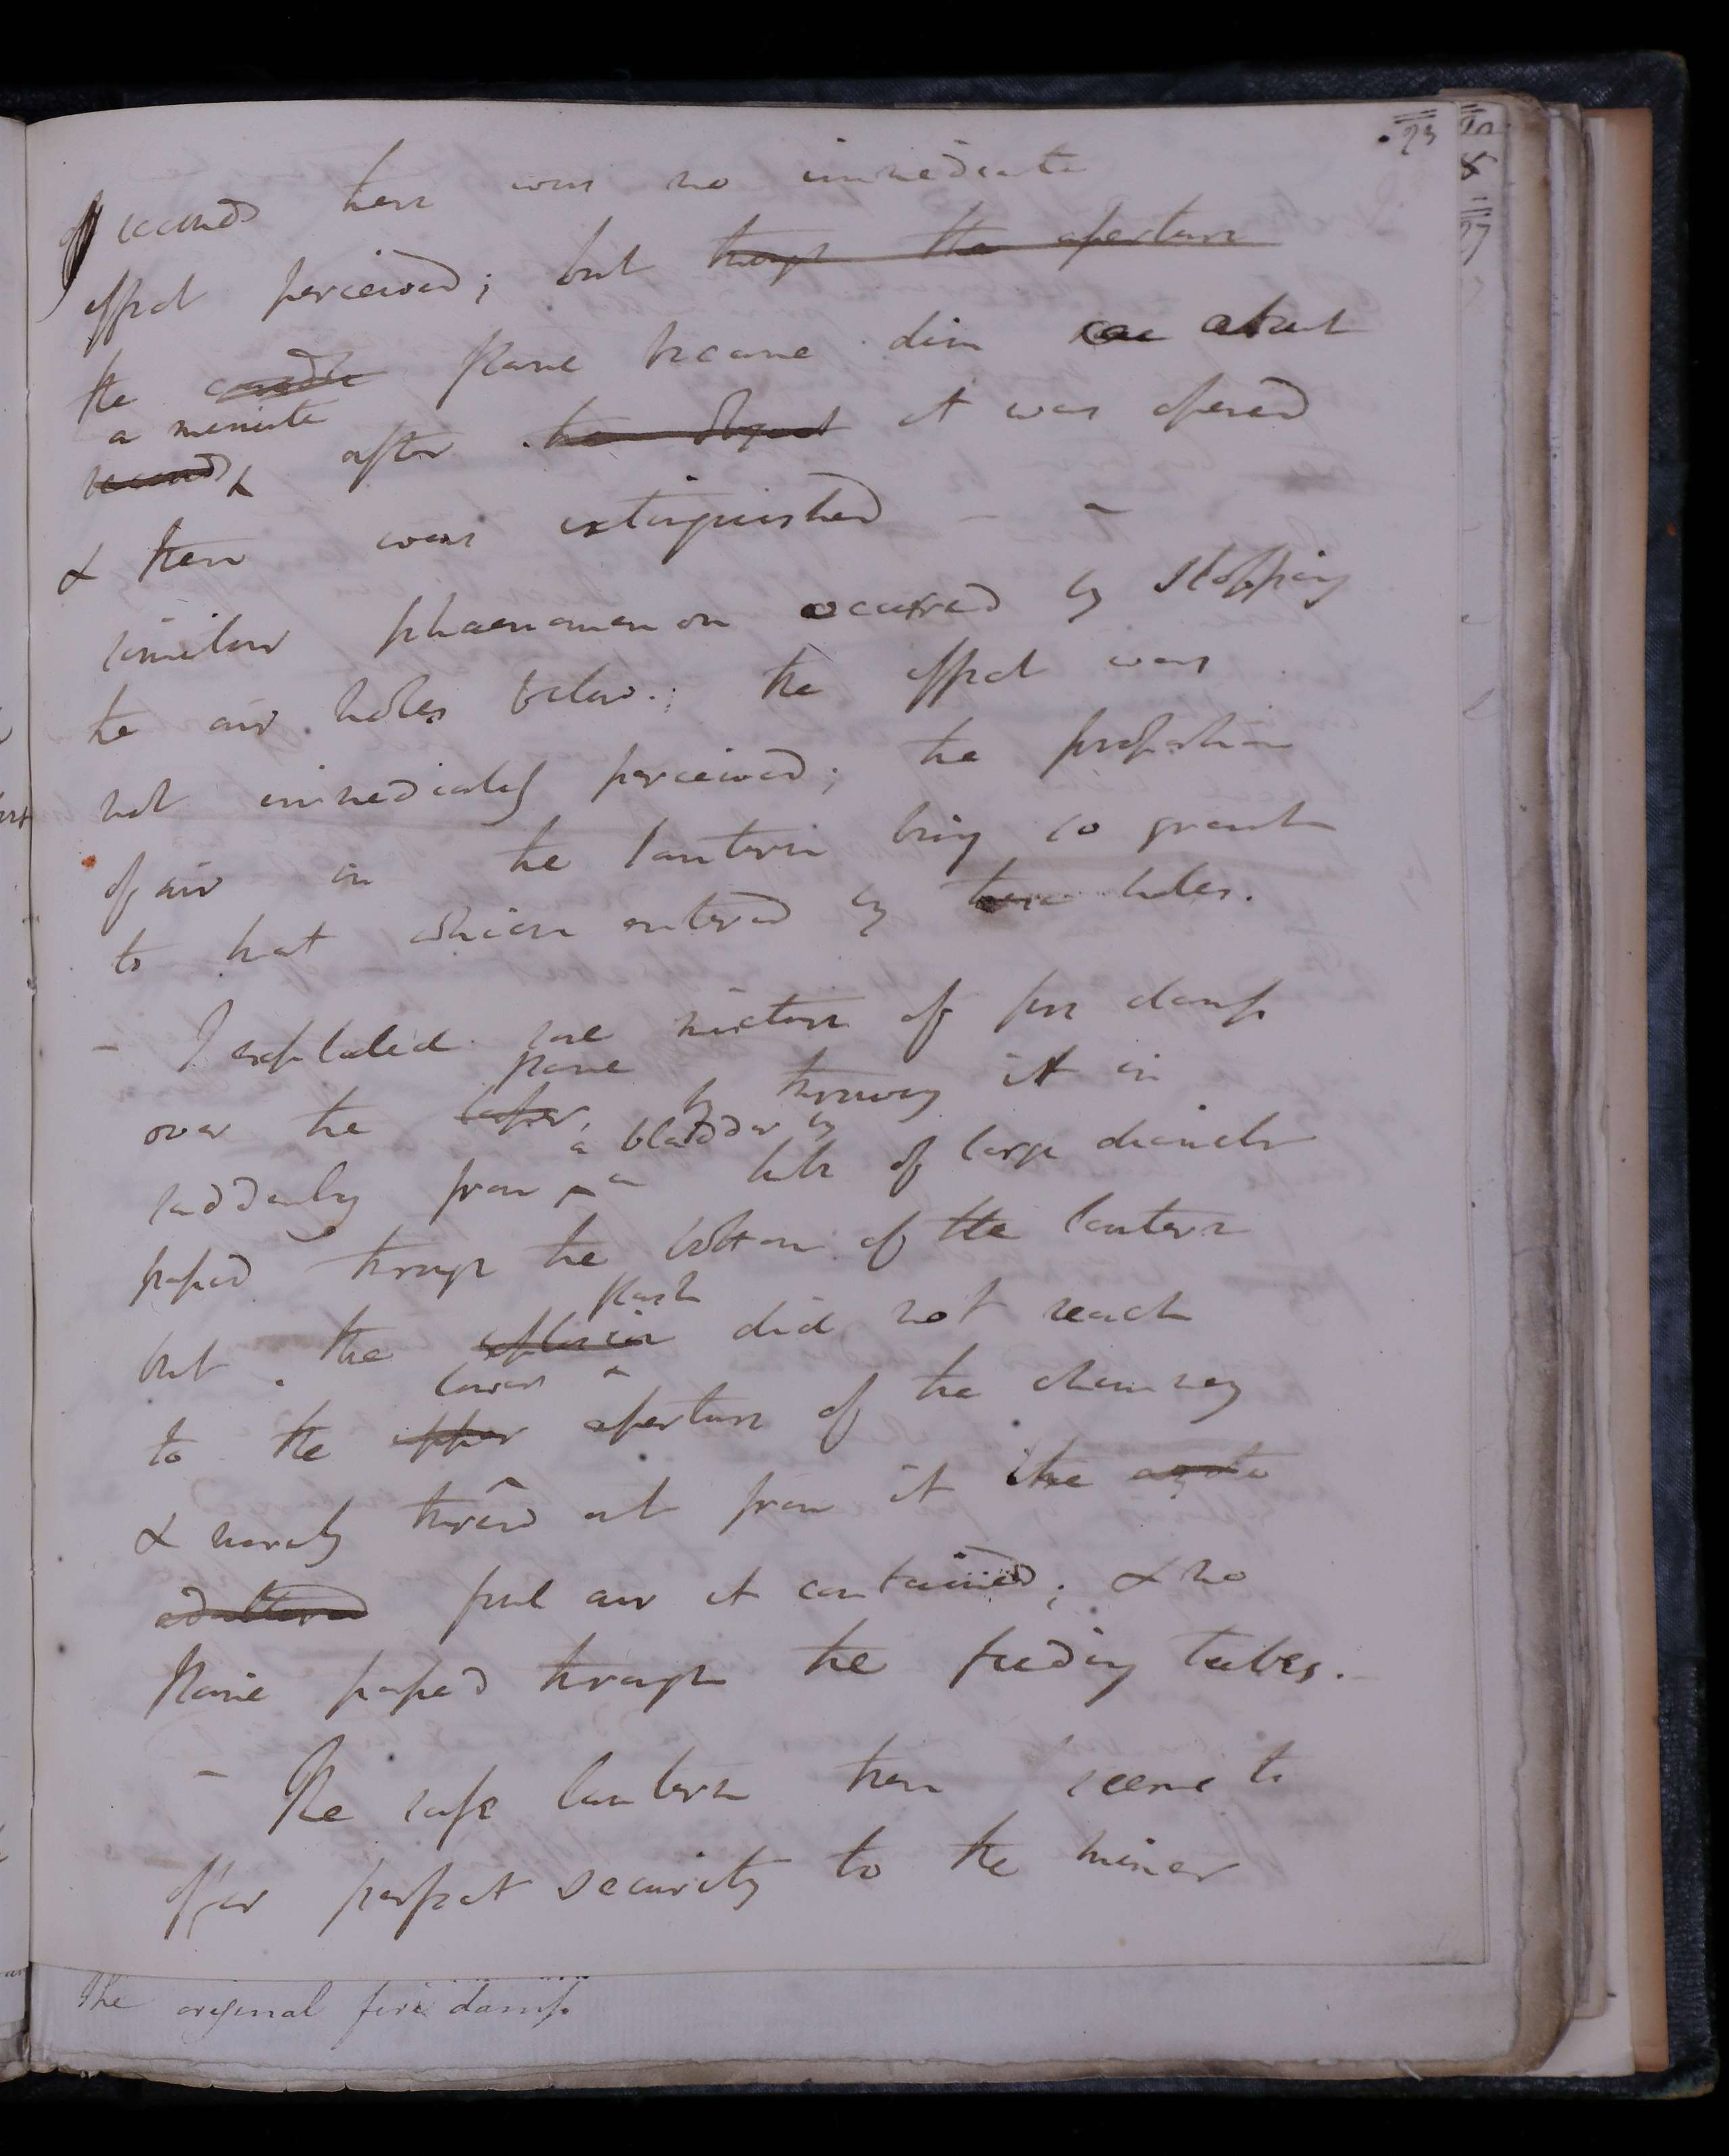 23
of seconds there was no immediate
effect perceived; but through the aperture
the candle flame became dim about
a minute
seconds after the Object it was opened
& then was extinguished – –
similar phaenomenon occurred by stopping
the air holes below.; the effect was
not immediately perceived; the proportion
of air in the lantern being so great
to that which entered by these holes.
– I exploded some mixture of fire damp
flame
over the taper, by throwing it in
a bladder by
suddenly from a tube of large diameter
passed through the bottom of the lantern
flash
but the explosion did not reach
lower
to the upper aperture of the chimney
& merely threw out from it the azote
foul air it contained; & no
flame passed through the feeding tubes.
– The safe lantern then seems to
offer perfect security to the miner
The original fire damp